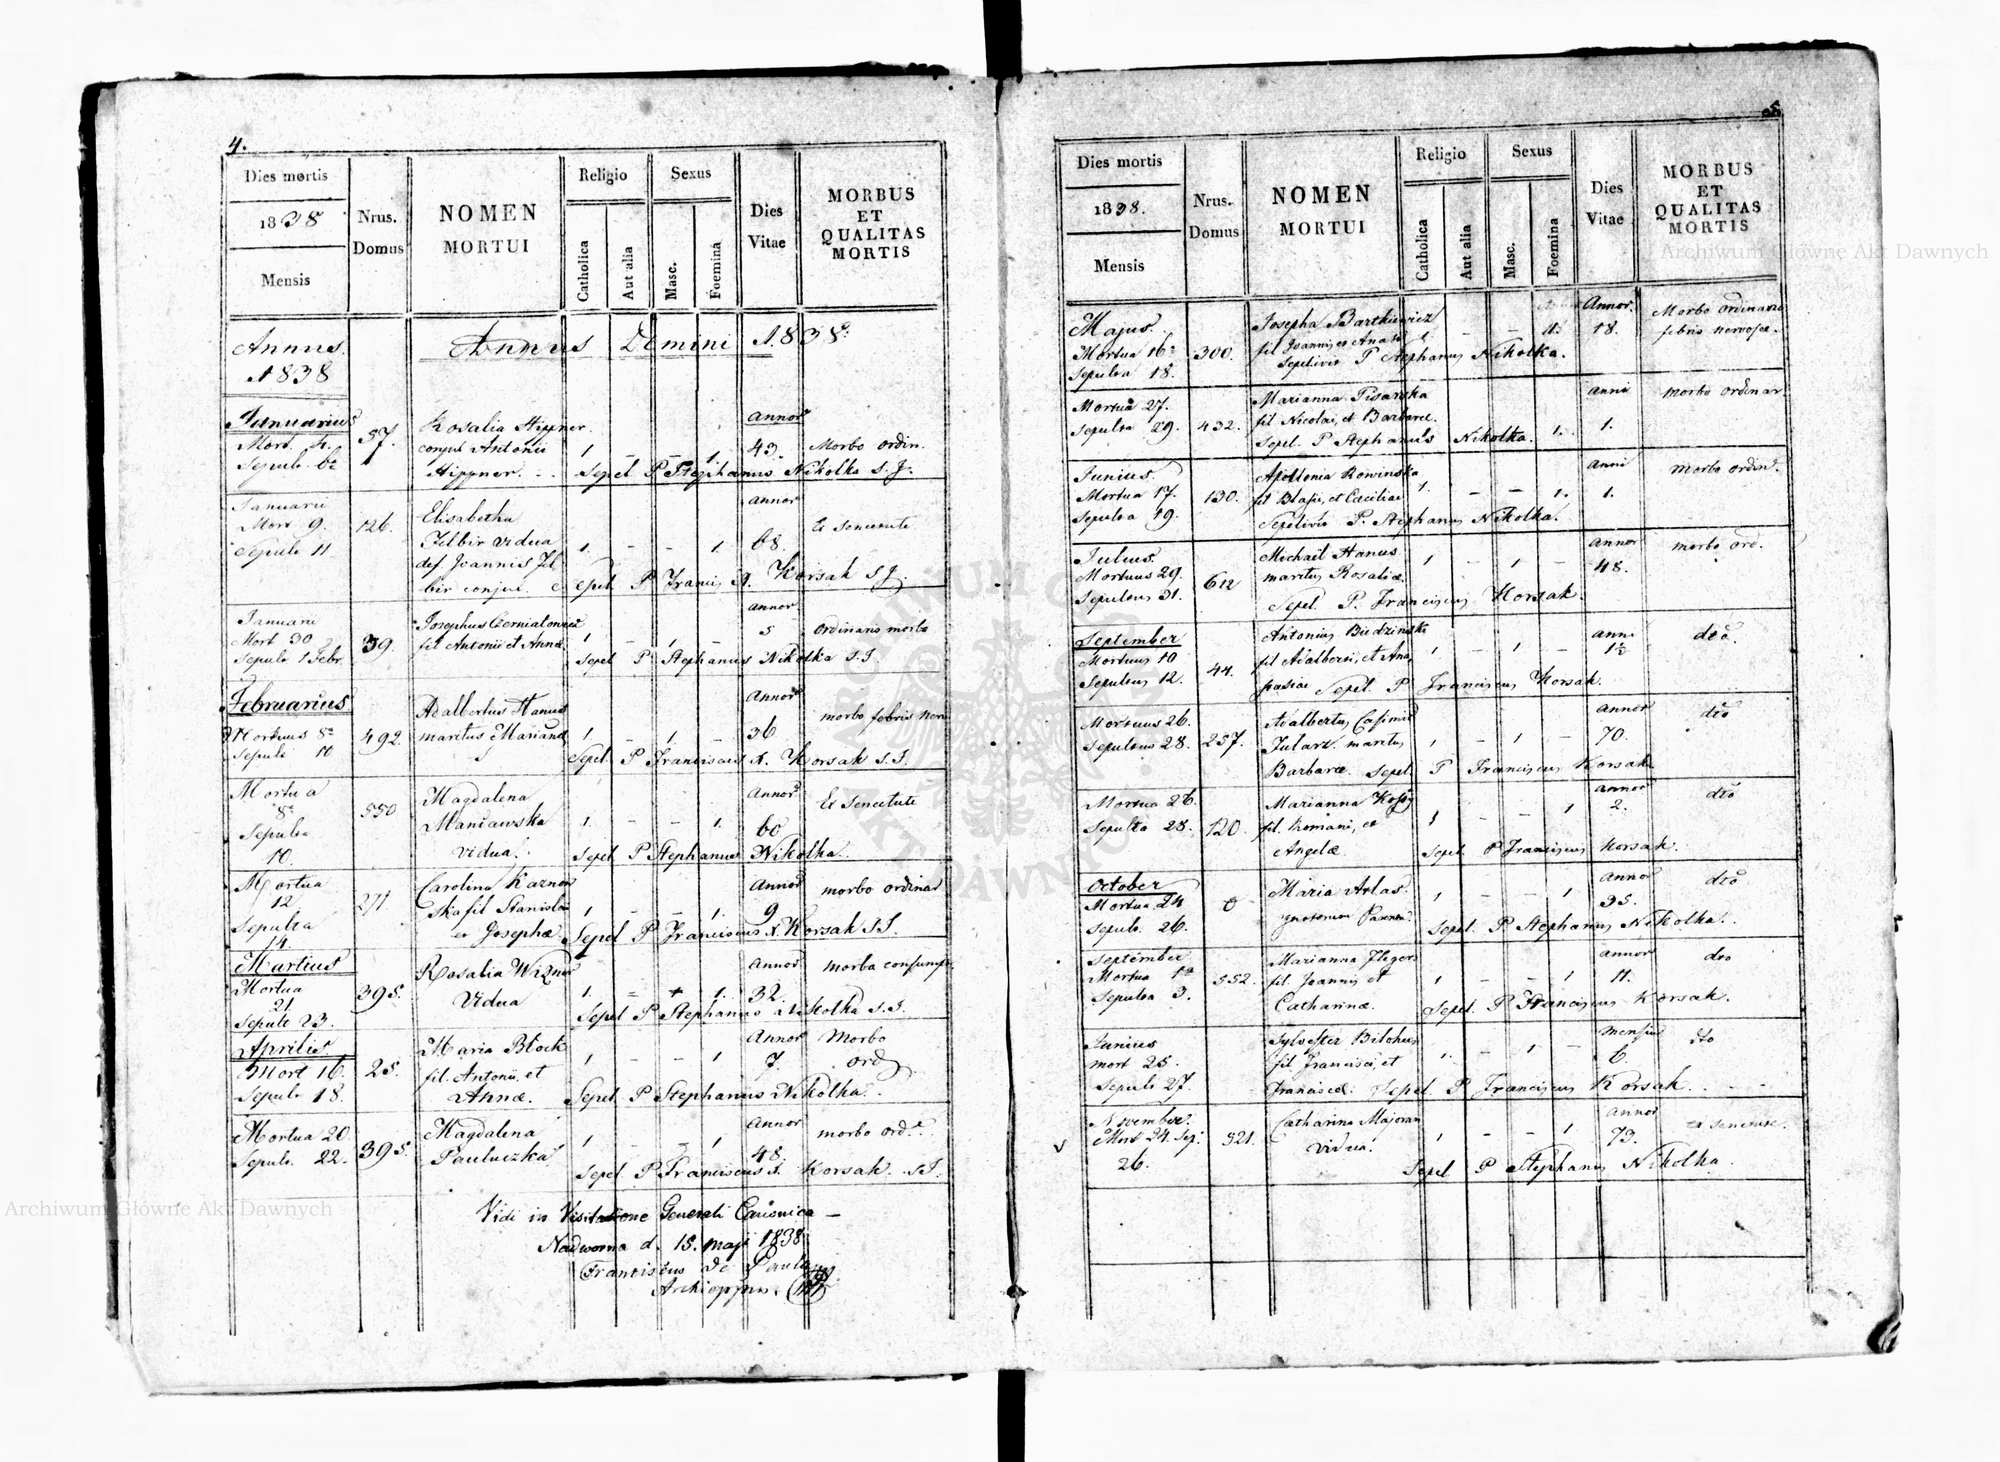 4.
Dies mortis
1838
Mensis
Nrus.
Domus
NOMEN
MORTUI
Religio
Catholica
Aut alia
Sexus
Masc.
Foemina
Dies
Vitae
MORBUS
ET
QUALITAS
MORTIS
Annus
1838
Annus Domini 1838
Januarius
Mort. 4.
Sepult. 6
57.
Rosalia Hippner
conjux Antonii
Hippner.
1 - - 1.
Annor
43.
Morbo ordin.
Sepel P Stephanus Nikolka S.J.
Januarii
Mort 9.
Sepult 11
126.
Elisabetha
vidua
def Joannis
conjux.
1. - - 1.
annor
68.
Ex senectute
Sepel P Francis X. Korsak S J.
Januarii
Mort 30
Sepult 1 Febr.
39.
Josephus
fil Antonii et Annae
1 - 1 -
annor
5
ordinario morbo
Sepel P Stephanus Nikolka S.J.
Februarius
Mortuus 8
Sepult 10
492.
Adalbertus Hanus
maritus Mariannae
1. - 1 -
Annor
36
morbo febris nerv
Sepel P Franciscus X. Korsak S.J.
Mortua
8
Sepulta
10.
550
Magdalena
Maniawska
Vidua.
1. - - 1.
Annor
60
Ex senectute
Sepel P Stephanus Nikolka.
Mortua
12
Sepulta
14.
271
Carolina Kaznow
ska fil Stanislai
et Josephae
1 - - 1.
Annor
9
morbo ordinar
Sepel P Franciscus X. Korsak S.J.
Martius
Mortua
21
Sepult 23.
395.
Rosalia
Vidua
1. - - 1.
Annor
32.
morbo consumpt.
Sepel P Stephanus Nikolka S.J.
Aprilis
Mort 16.
Sepult 18.
25.
Maria Block
fil. Antonii, et
Annae.
1 - - 1
Annor
7.
Morbo
ord
Sepel P Stephanus Nikolka.
Mortua 20.
Sepult. 22.
395.
Magdalena
Pauluczka
1 - - 1
Annor
48.
morbo ord.
Sepel P Franciscus X. Korsak. S.J.
Vidi in Visitatione Generali Canonica
Nadworna d. 15. maji 1838
Franciscus de Paula
Archieppus.
5.
Dies mortis
1838.
Mensis
Nrus.
Domus
NOMEN
MORTUI
Religio
Catholica
Aut alia
Sexus
Masc.
Foemina
Dies
Vitae
MORBUS
ET
QUALITAS
MORTIS
Majus.
Mortua 16
Sepulta 18.
300.
Josepha Bartkiewicz
fil Joannis et
Sepelivit P Stephanus Nikolka.
1 - - 1.
Annor.
18.
Morbo ordinario
febris nervosae.
Mortua 27.
Sepulta 29.
432.
Marianna Pisarska
fil Nicolai, et Barbarae.
Sepel. P Stephanus Nikolka. 1.
anni
1.
morbo ordinar
Junius.
Mortua 17.
Sepulta 19.
130.
Apollonia Rowinska
fil Blasii, et Caeciliae
1. - - 1.
Sepelivit P. Stephanus Nikolka.
anni
1.
morbo ordin.
Julius.
Mortuus 29.
Sepultus 31.
612
Michael Hanus
maritus Rosaliae
1 - 1 -
annor
48.
morbo ord.
Sepel. P. Franciscus Korsak.
September
Mortuus 10
Sepultus 12.
44.
Antonius Budzinski
fil Adalberti, et Ana
stasiae Sepel. P Franciscus Korsak.
1 - 1 -
anni
dto.
Mortuus 26.
Sepultus 28.
237.
Adalbertus Casimir
maritus
Barbarae. Sepel. P Franciscus Korsak
1 - 1 -
annor
70.
dto
Mortua 26.
Sepulta 28.
120.
Marianna
fil. Romani, et
Angelae.
1 - - 1
annor
2.
dto
Sepel. P Franciscus Korsak.
October
Mortua 24
Sepult. 26.
0
Maria Arlas.
1 - - 1
annor
35.
dto
Sepel P Stephanus Nikolka.
September
Mortua 1
Sepulta 3.
552.
Marianna Fleger
fil. Joannis et
Catharinae.
1 - - 1
annor
11.
dto
Sepel. P Franciscus Korsak.
Junius
mort 25.
Sepult 27.
Sylvester
fil Francisci, et
Franciscae. Sepel. P Franciscus Korsak.
1. - 1 -
mensium
6.
dto
November.
Mort 24. Sep.
26.
321.
Catharina Majoran
vidua.
1 - - 1
annor
73.
ex senectute.
Sepel P Stephanus Nikolka.
Archiwum Główne Akt Dawnych
Archiwum Główne Akt Dawnych
ARCHIWUM GŁÓWNE AKT DAWNYCH